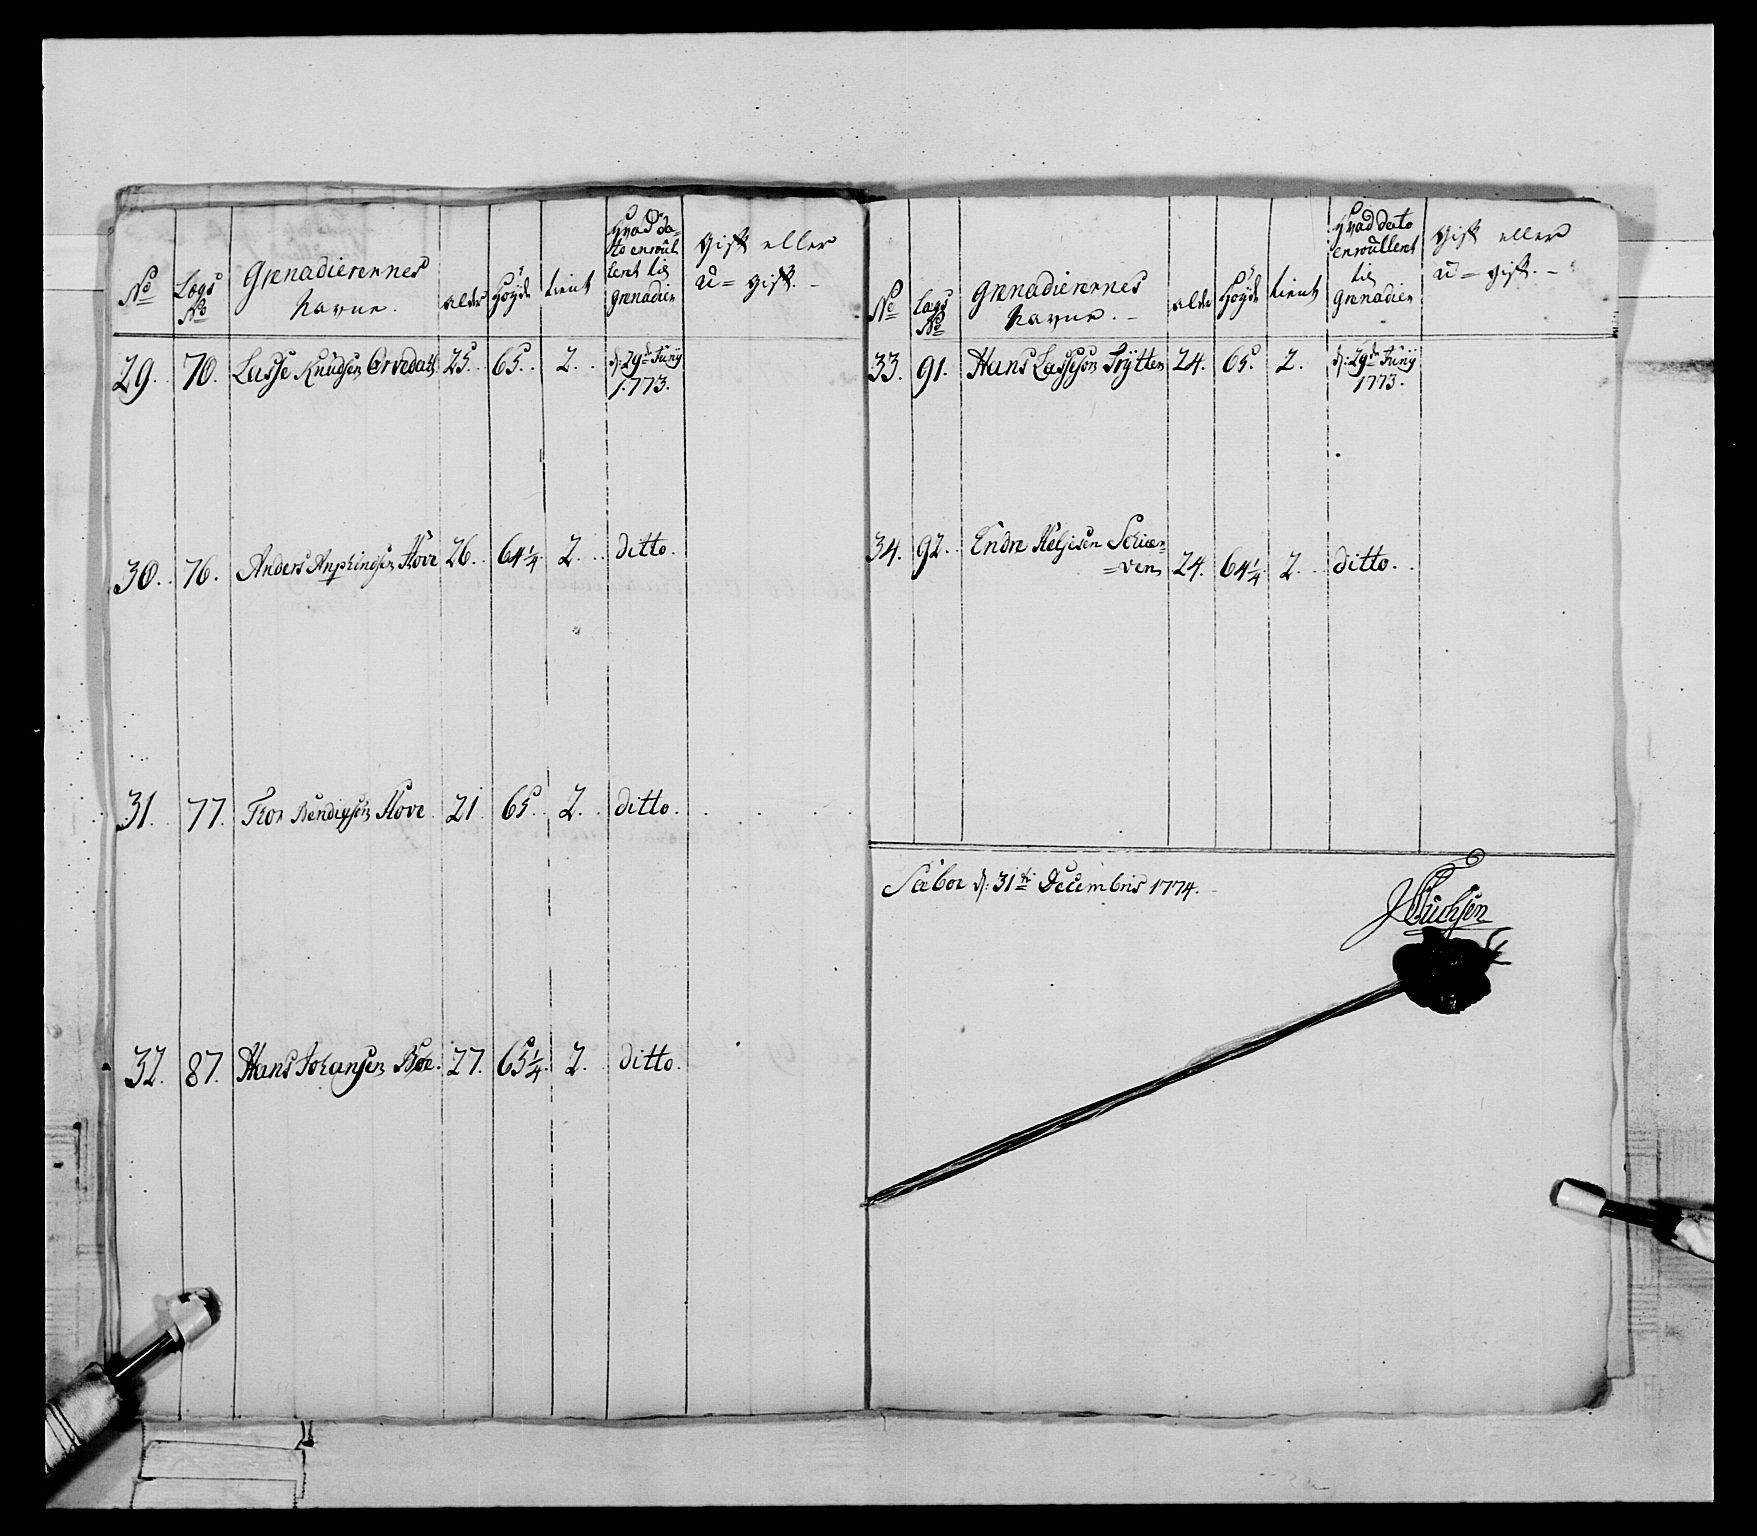 No
Lægs No
Grenadierernes Navne.
alder
Høyde
tient
Hvad dato enroullert til Grenadier
Gift eller U=gift.
29. 70. Lasse Knudsen Orvedall 25. 65. 2. d: 29de Junÿ 1773.
30. 76. Anders Hove 26. 64 1/4 2. ditto.
31. 77. Thor Bendixsen Hove 21 65. 2. ditto.
32. 87. Hans Johansen Bøe. 27. 65 1/4 2. ditto.
No
Lægs No
Grenadierernes Navne.
alder
Høyde
tient
Hvad dato enroullert til Grenadier
Gift eller U=gift.
33. 91. Hans Lassesøn Trÿtten 24. 65. 2. d: 29de Junÿ 1773.
34. 92. Endre Helgesen Schier=
=ven 24. 64 1/4 2. ditto.
Sæboe d: 31te Decembris 1774.